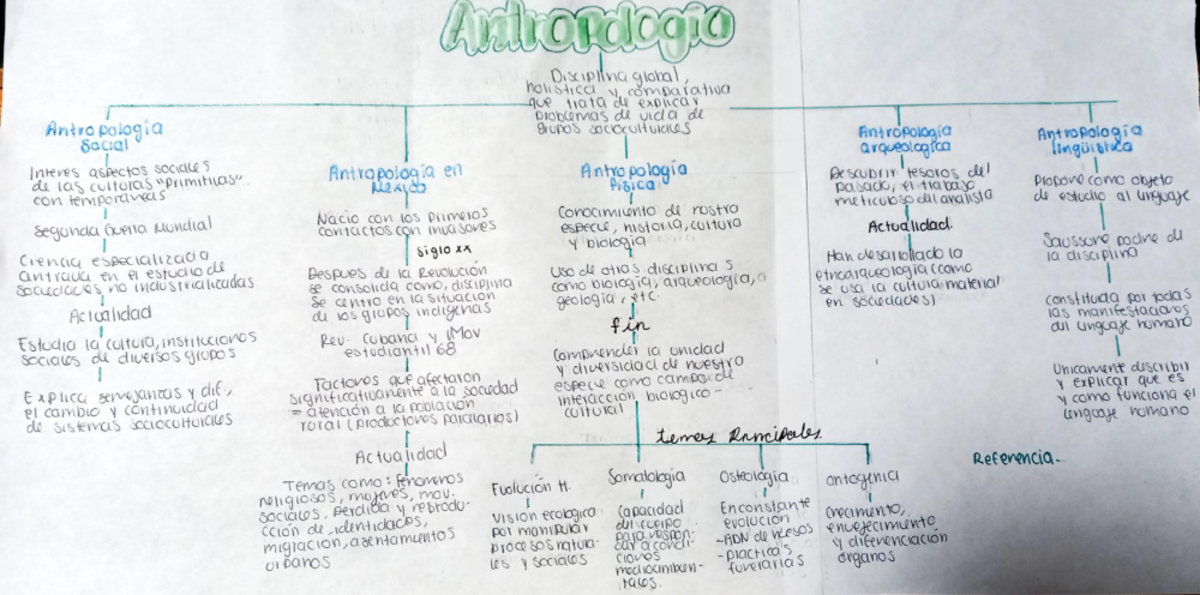 Antropología
Disciplina global,
holística y comparativa
que trata de explicar
problemas de vida de
grupos socioculturales
Antropología
Social
Interes aspectos sociales
de las culturas "primitivas"
contemporáneas
Segunda Guerra Mundial
Ciencia especializada
centrada en el estudio de
sociedades no industrializadas
Actualidad
Estudia la cultura, instituciones
sociales de diversos grupos
Explica semejanzas y dif.,
el cambio y continuidad
de sistemas socioculturales
Antropología en
México
Nacio con los primeros
contactos con invasores
siglo xx
Despues de la Revolución
se consolida como, disciplina
se centro en la situación
de los grupos indigenas
Rev. cubana y Mov
estudiantil 68
Factores que afectaron
significativamente a la sociedad
= atención a la población
rural (productores parcelarios)
Actualidad
Temas como: fenómenos
religiosos, mujeres, mov.
sociales, perdida y reprodu-
cción de identidades,
migracion, asentamientos
urbanos
Antropología
física
Conocimiento de nostra
especie, historia, cultura
y biología
Uso de otras disciplinas
como biología, arqueología,
geología, etc.
fin
Comprender la unidad
y diversidad de nuestra
especie como campo de
interacción biologico-
cultural
temas Principales
Evolución H.
Visión ecologica
por manipular
procesos natura-
les y sociales
Somatologia
Capacidad
del cuerpo
para respon-
der a condi-
ciones
medioambien-
tales.
Osteología
En constante
evolución
-ADN de huesos
-practicas
funerarias
ontogenia
crecimiento,
envejecimiento
y diferenciación
órganos
Antropología
arqueologica
Descubrir tesoros del
pasado, el trabajo
meticuloso del analista
Actualidad.
Han desarrollado la
etnoarqueología (como
se usa la cultura material
en sociedades)
Antropología
lingüística
Propone como objeto
de estudio al lenguaje
Saussure padre de
la disciplina
constituida por todas
las manifestaciones
del lenguaje humano
Unicamente describir
y explicar que es
y como funciona el
lenguaje humano
Referencia.